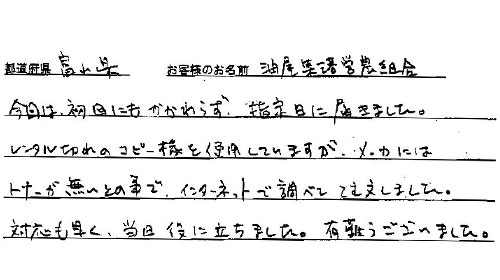 都道府県 富山県 お客様のお名前 油屋集落営農組合
今回は、初回にもかかわらず、指定日に届きました。
レンタル切れのコピー機を使用していますが、メーカには
トナーが無いとの事で、インターネットで調べて注文しました。
対応も早く、当日役に立ちました。有難うございました。